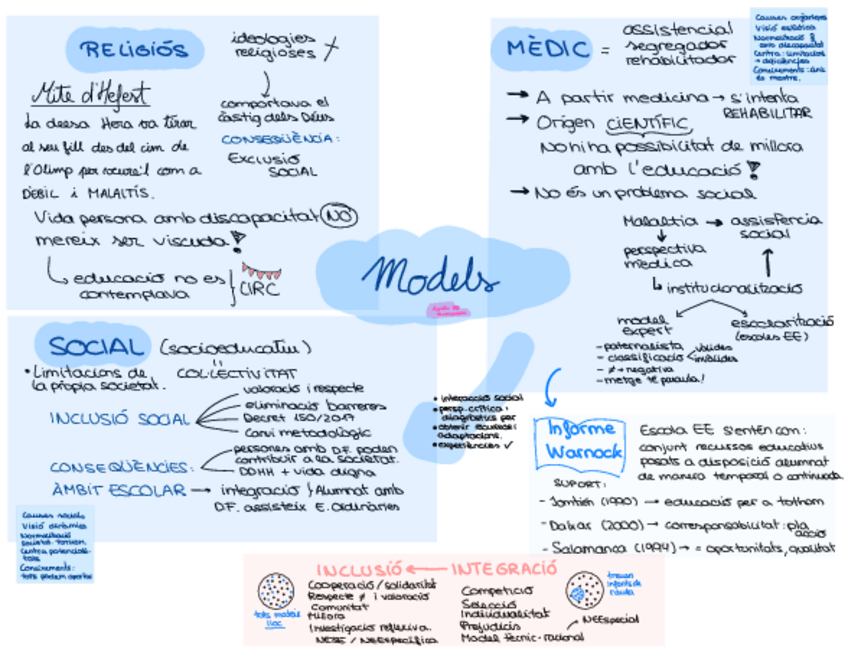 RELIGIÓS
ideologies
religioses
Mite d'Hefest
La deesa Hera va tirar
al seu fill des del cim de
l'Olimp per
com a
DÈBIL i MALALTÍS.
comportava el
càstig dels Déus
CONSEQÜÈNCIA:
EXCLUSIÓ
SOCIAL
Vida persona amb discapacitat NO
mereix ser viscuda
educació no es
contemplava
CIRC
MÈDIC =
assistencial
segregador
rehabilitador
Causes orgàniques
Visió estàtica
Normalització
amb discapacitat
Centra: limitacions
→ deficiències
Coneixements: únic
és mestre.
→ A partir medicina → s'intenta
REHABILITAR
→ Origen CIENTÍFIC
No hi ha possibilitat de millora
amb l'educació!
→ No és un problema social
Malaltia → assistència
social
perspectiva
mèdica
institucionalització
model
expert
escolarització
(escoles EE)
- paternalista
- classificació
vàlides
invàlides
- ≠ → negativa
- metge té paraula!
Models
SOCIAL (socioeducatiu)
• Limitacions de
la pròpia societat.
COL·LECTIVITAT
INCLUSIÓ SOCIAL
valoració i respecte
eliminació barreres
Decret 150/2017
Canvi metodològic
CONSEQÜÈNCIES:
persones amb D.F. poden
contribuir a la societat.
DDHH + vida digna
ÀMBIT ESCOLAR → integració } Alumnat amb
D.F. assisteix E. Ordinàries
• interacció social
• persp. crítica i
diagnòstics per
• obtenir
adaptacions.
• experiències ✓
Causes socials
Visió dinàmica
Normalització
societat
Centra potenciali-
tats
Coneixements:
tots podem aportar
Informe
Warnock
Escola EE s'entén com:
conjunt recursos educatius
posats a disposició alumnat
de manera temporal o continuada
SUPORT:
- Jomtien (1990) → educació per a tothom
- Dakar (2000) → corresponsabilitat: pla
acció
- Salamanca (1994) → = oportunitats, qualitat
INCLUSIÓ ← INTEGRACIÓ
tots mateix
lloc
Cooperació/solidaritat
Respecte ≠ i valoració
Comunitat
Millora
Investigació reflexiva.
NESE / NEEspecífica
Competició
Selecció
Individualitat
Prejudicis
Model tècnic-racional
treuen
infants de
l'aula
NEEspecial